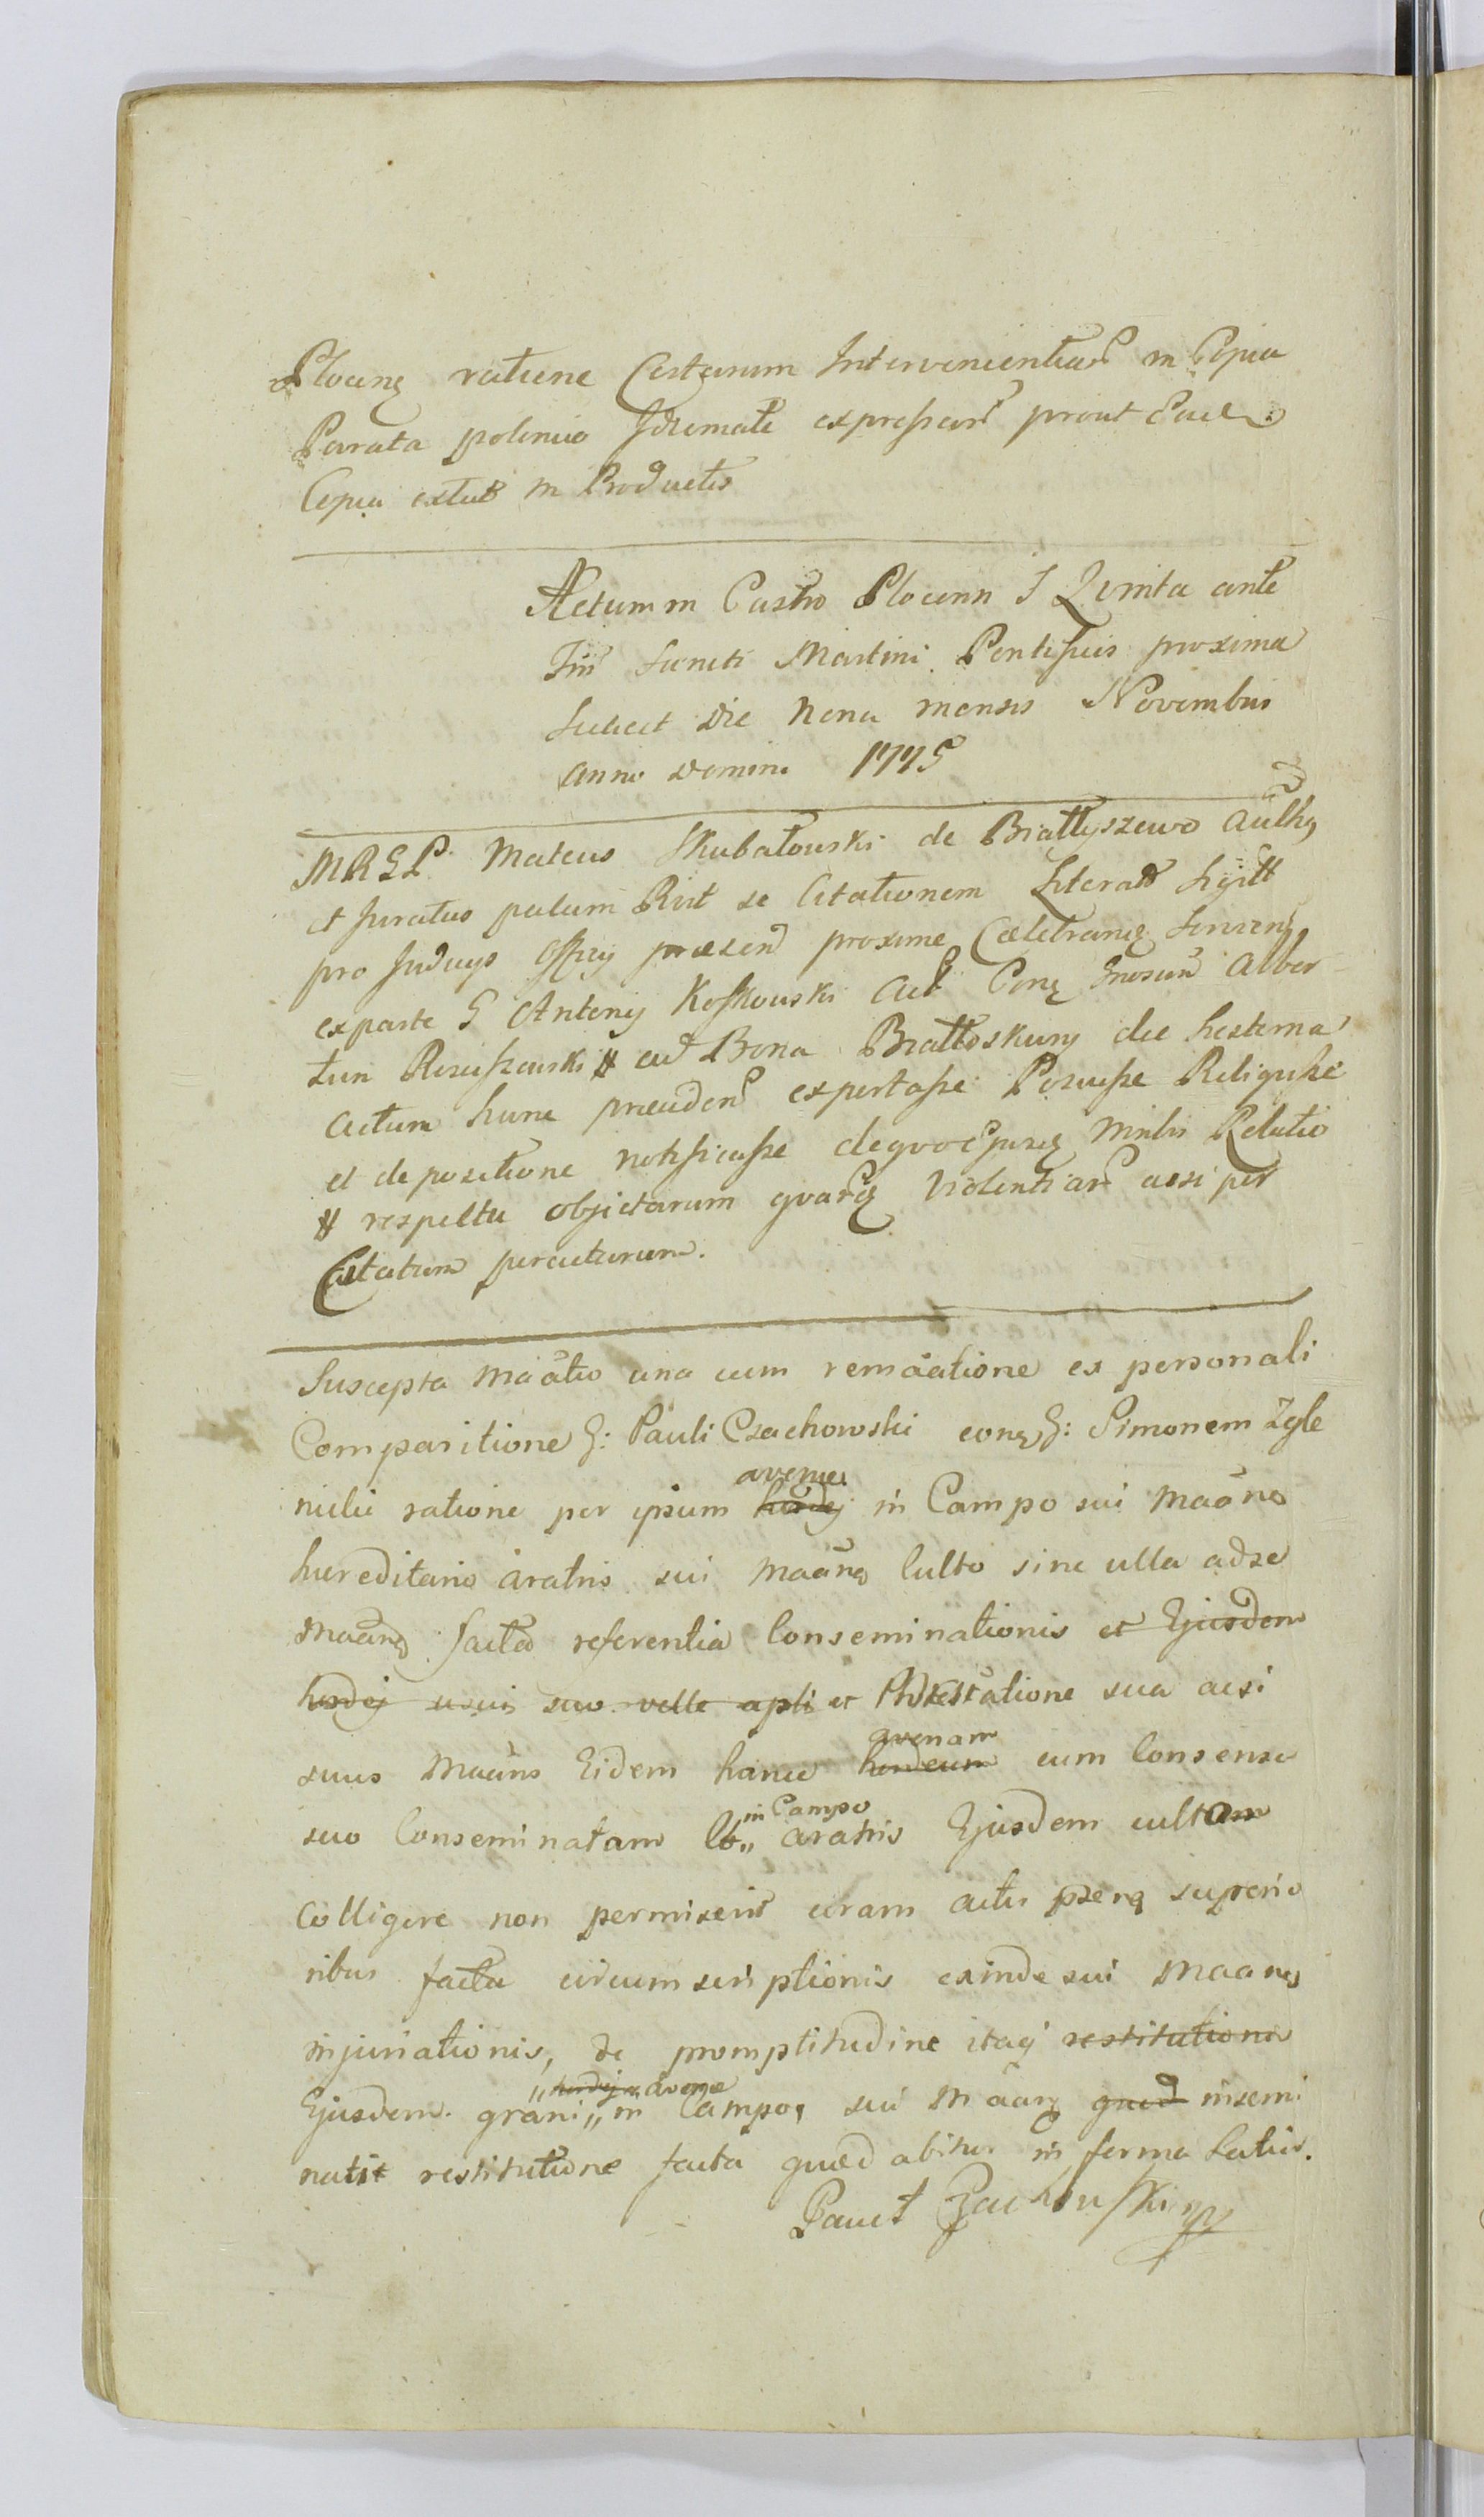 Plocens ratione Certarum Interveniential in Copia
Parata polonico Idiomate expressar prout Ead
Copia extat in Productis
Actum in Castro Plocenn F Quinta ante
Fm Sancti Martini Pontificis proxima
scilicet die Nona mensis Novembris
anno Domini 1775
MRGP Mateus Skubatowski de Białłyszewo
et Juratus palam Rat se Citationem Literal
pro Judicys Officij præsen proxime Cælebran
exparte G Antony Kosskowski Act Conq Gnosum Alber
tum ad Bona Białłoskury die hesterna
actum hunc præceden exportasse Posuisse Reliquisse
et de positione notificasse de quo ejusq Mnlis Relatio
respectu objectarum quarq violentiar acsi per
Citatum peractarum.
Suscepta Maãtio una cum remãatione ex personali
Comparitione G: Pauli Czachowski conq G: Simonem Zgle
nicki ratione per ipsum avenæ hordej in Campo sui Maãnq
hæreditario aratris sui Maãnq Culto sine ulla adse
Maãnq facta referentia Conseminationis et Ejusdem
hordej usui suo velle apli et Protestatione sua acsi
suus Maãns Eidem hance avenam hordeum cum Consensu
suo Conseminatam in Campo aratris Ejusdem cultam
Colligere non permiserit coram actis psenq superio
ribus facta circumscriptionis exinde sui Maanq
injuriationis, de promptitudine itaq restitutione
Ejusdem grani „hordej avenæ„ in Campo, sui Maãnq quod insemi
natit restitutione facta quæd abitur in forma Latius.
Paweł Czachowski mp